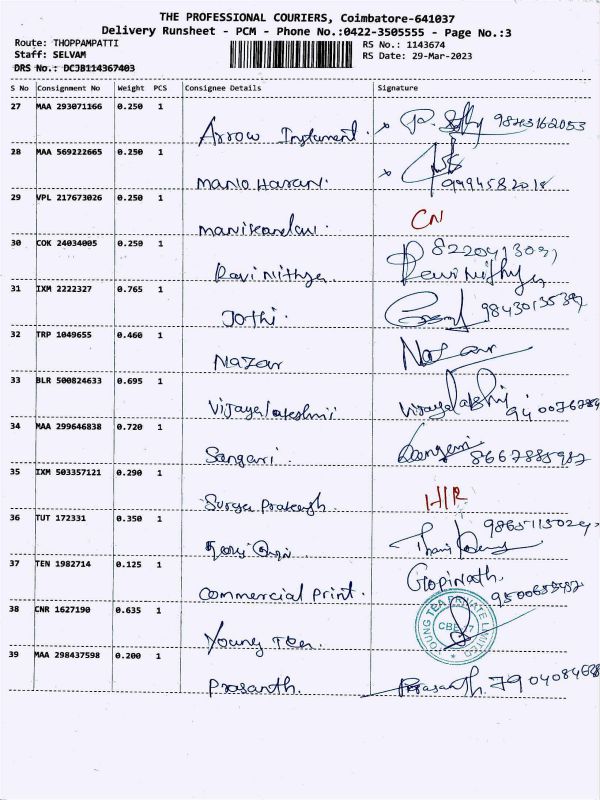 THE PROFESSIONAL COURIERS, Coimbatore-641037
Delivery Runsheet - PCM - Phone No.:0422-3505555 - Page No.:3
Route: THOPPAMPATTI
RS No.: 1143674
Staff: SELVAM
RS Date: 29-Mar-2023
DRS No.: DCJB114367403
S No Consignment No Weight PCS Consignee Details Signature
27 MAA 293071166 0.250 1
Arrow Instument. 9843162053
28 MAA 569222665 0.250 1
Mano Haran.
29 VPL 217673026 0.250 1
manikandan. CN
30 COK 24034005 0.250 1
Ravi Nithya Ravi Nithya
31 IXM 2222327 0.765 1
Jothi.
32 TRP 1049655 0.460 1
Nazar Nazar
33 BLR 500824633 0.695 1
Vijayalakshmi Vijayalakshmi
34 MAA 299646838 0.720 1
Sangari
35 IXM 503357121 0.290 1
Surya Prakash H/R
36 TUT 172331 0.350 1
37 TEN 1982714 0.125 1
Commercial Print. Gopinath.
38 CNR 1627190 0.635 1
Young Tea YOUNG TEA PRIVATE LIMITED
39 MAA 298437598 0.200 1
Prasanth. Prasanth.